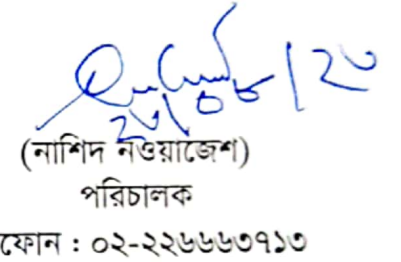 (নাশিদ নওয়াজেশ)
পরিচালক
ফোন : ০২-২২৬৬৬৩৭১৩